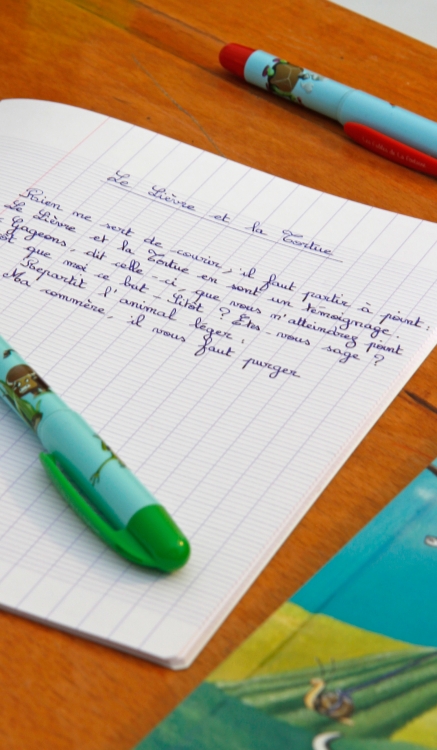 Le Lièvre et la Tortue
Raien me sert de courir ; il faut partir à point :
Le Lièvre et la Tortue en sont un témoignage.
Gageons, dit celle-ci, que vous n'atteindrez point
que moi ce but - Sitôt ? Êtes-vous sage ?
Repartit l'animal léger :
Ma commère, il vous faut purger